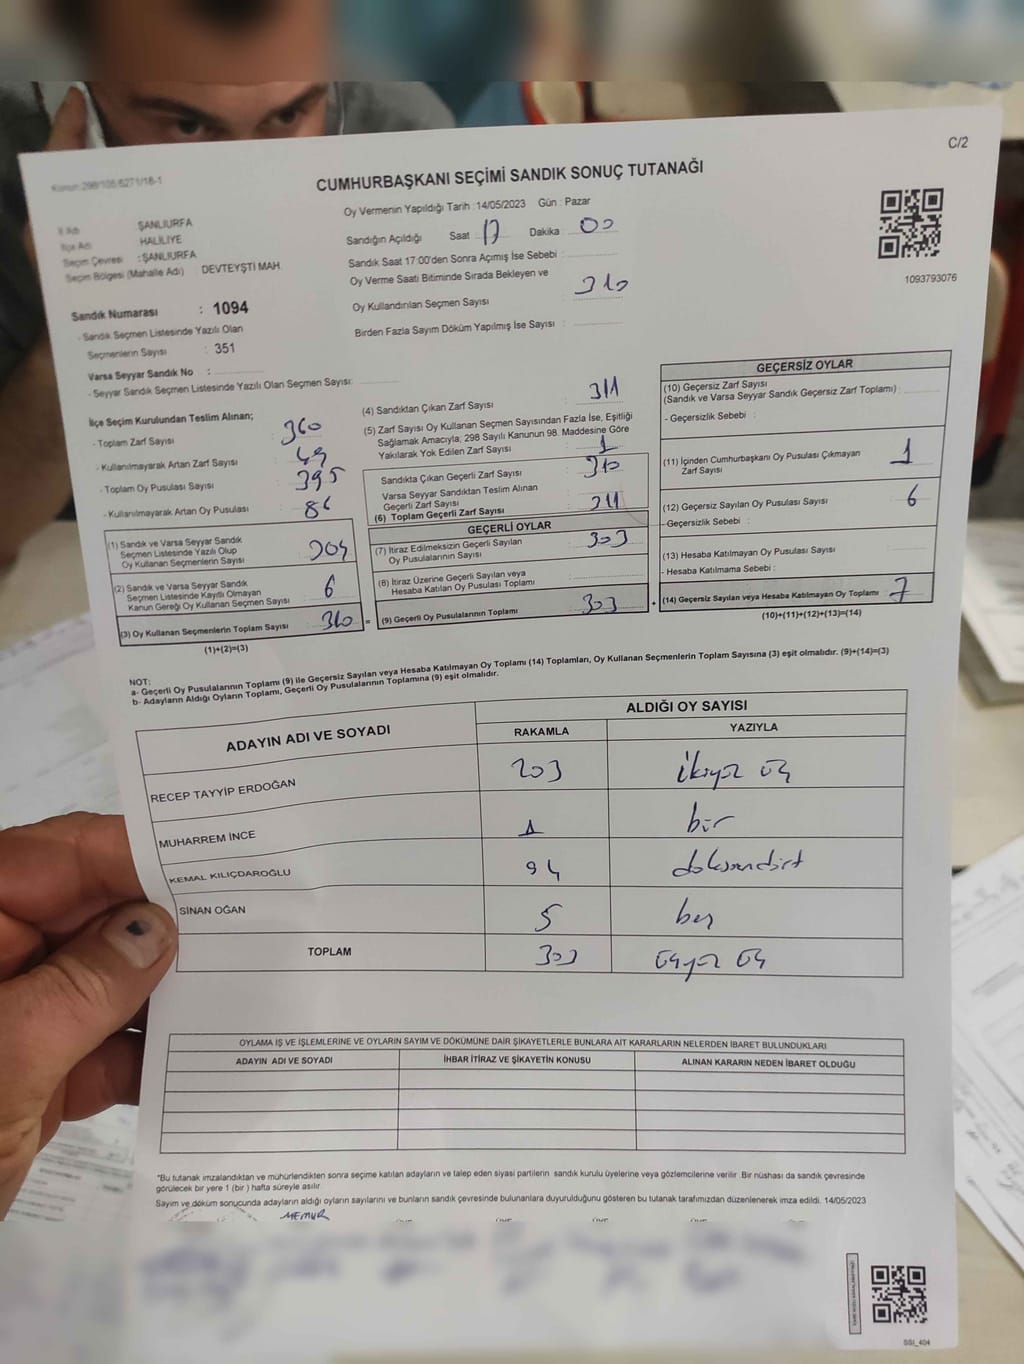 C/2
Kanun:298/105,6271/18-1
CUMHURBAŞKANI SEÇİMİ SANDIK SONUÇ TUTANAĞI
Oy Vermenin Yapıldığı Tarih : 14/05/2023 Gün : Pazar
İl Adı : ŞANLIURFA
İlçe Adı : HALİLİYE
Seçim Çevresi : ŞANLIURFA
Seçim Bölgesi (Mahalle Adı) DEVTEYŞTİ MAH.
Sandığın Açıldığı Saat 17 Dakika : 00
Sandık Saat 17:00'den Sonra Açımış İse Sebebi :
Oy Verme Saati Bitiminde Sırada Bekleyen ve
Oy Kullandırılan Seçmen Sayısı : 310
Birden Fazla Sayım Döküm Yapılmış İse Sayısı :
1093793076
Sandık Numarası : 1094
- Sandık Seçmen Listesinde Yazılı Olan
Seçmenlerin Sayısı : 351
Varsa Seyyar Sandık No :
- Seyyar Sandık Seçmen Listesinde Yazılı Olan Seçmen Sayısı:
İlçe Seçim Kurulundan Teslim Alınan;
- Toplam Zarf Sayısı : 360
- Kullanılmayarak Artan Zarf Sayısı : 49
- Toplam Oy Pusulası Sayısı : 395
- Kullanılmayarak Artan Oy Pusulası : 86
(1) Sandık ve Varsa Seyyar Sandık
Seçmen Listesinde Yazılı Olup
Oy Kullanan Seçmenlerin Sayısı : 304
(2) Sandık ve Varsa Seyyar Sandık
Seçmen Listesinde Kayıtlı Olmayan
Kanun Gereği Oy Kullanan Seçmen Sayısı : 6
(3) Oy Kullanan Seçmenlerin Toplam Sayısı : 310
(1)+(2)=(3)
(4) Sandıktan Çıkan Zarf Sayısı : 311
(5) Zarf Sayısı Oy Kullanan Seçmen Sayısından Fazla İse, Eşitliği
Sağlamak Amacıyla, 298 Sayılı Kanunun 98. Maddesine Göre
Yakılarak Yok Edilen Zarf Sayısı : 1
Sandıkta Çıkan Geçerli Zarf Sayısı : 310
Varsa Seyyar Sandıktan Teslim Alınan
Geçerli Zarf Sayısı :
(6) Toplam Geçerli Zarf Sayısı : 311
GEÇERLİ OYLAR
(7) İtiraz Edilmeksizin Geçerli Sayılan
Oy Pusulalarının Sayısı : 303
(8) İtiraz Üzerine Geçerli Sayılan veya
Hesaba Katılan Oy Pusulası Toplamı :
= (9) Geçerli Oy Pusulalarının Toplamı : 303
GEÇERSİZ OYLAR
(10) Geçersiz Zarf Sayısı
(Sandık ve Varsa Seyyar Sandık Geçersiz Zarf Toplamı) :
- Geçersizlik Sebebi :
(11) İçinden Cumhurbaşkanı Oy Pusulası Çıkmayan
Zarf Sayısı : 1
(12) Geçersiz Sayılan Oy Pusulası Sayısı : 6
- Geçersizlik Nedeni :
(13) Hesaba Katılmayan Oy Pusulası Sayısı :
- Hesaba Katılmama Sebebi :
+ (14) Geçersiz Sayılan veya Hesaba Katılmayan Oy Toplamı : 7
(10)+(11)+(12)+(13)=(14)
NOT:
a- Geçerli Oy Pusulalarının Toplamı (9) ile Geçersiz Sayılan veya Hesaba Katılmayan Oy Toplamı (14) Toplamları, Oy Kullanan Seçmenlerin Toplam Sayısına (3) eşit olmalıdır. (9)+(14)=(3)
b- Adayların Aldığı Oyların Toplamı, Geçerli Oy Pusulalarının Toplamına (9) eşit olmalıdır.
ADAYIN ADI VE SOYADI ALDIĞI OY SAYISI
RAKAMLA YAZIYLA
RECEP TAYYİP ERDOĞAN 203 ikiyüz üç
MUHARREM İNCE 1 bir
KEMAL KILIÇDAROĞLU 94 doksandört
SİNAN OĞAN 5 beş
TOPLAM 303 üçyüz üç
OYLAMA İŞ VE İŞLEMLERİNE VE OYLARIN SAYIM VE DÖKÜMÜNE DAİR ŞİKAYETLERLE BUNLARA AİT KARARLARIN NELERDEN İBARET BULUNDUKLARI
ADAYIN ADI VE SOYADI İHBAR İTİRAZ VE ŞİKAYETİN KONUSU ALINAN KARARIN NEDEN İBARET OLDUĞU
*Bu tutanak imzalandıktan ve mühürlendikten sonra seçime katılan adayların ve talep eden siyasi partilerin sandık kurulu üyelerine veya gözlemcilerine verilir. Bir nüshası da sandık çevresinde
görülecek bir yere 1 (bir ) hafta süreyle asılır.
Sayım ve döküm sonucunda adayların aldığı oyların sayılarını ve bunların sandık çevresinde bulunanlara duyurulduğunu gösteren bu tutanak tarafımızdan düzenlenerek imza edildi. 14/05/2023
MEMUR
SSI_404